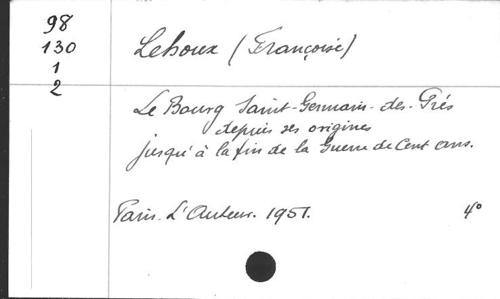 98
130
1
2
Lehoux (Françoise)
Le Bourg Saint-Germain-des-Prés
depuis ses origines
jusqu'à la fin de la Guerre de Cent ans.
Paris. L'Auteur. 1951. 4°